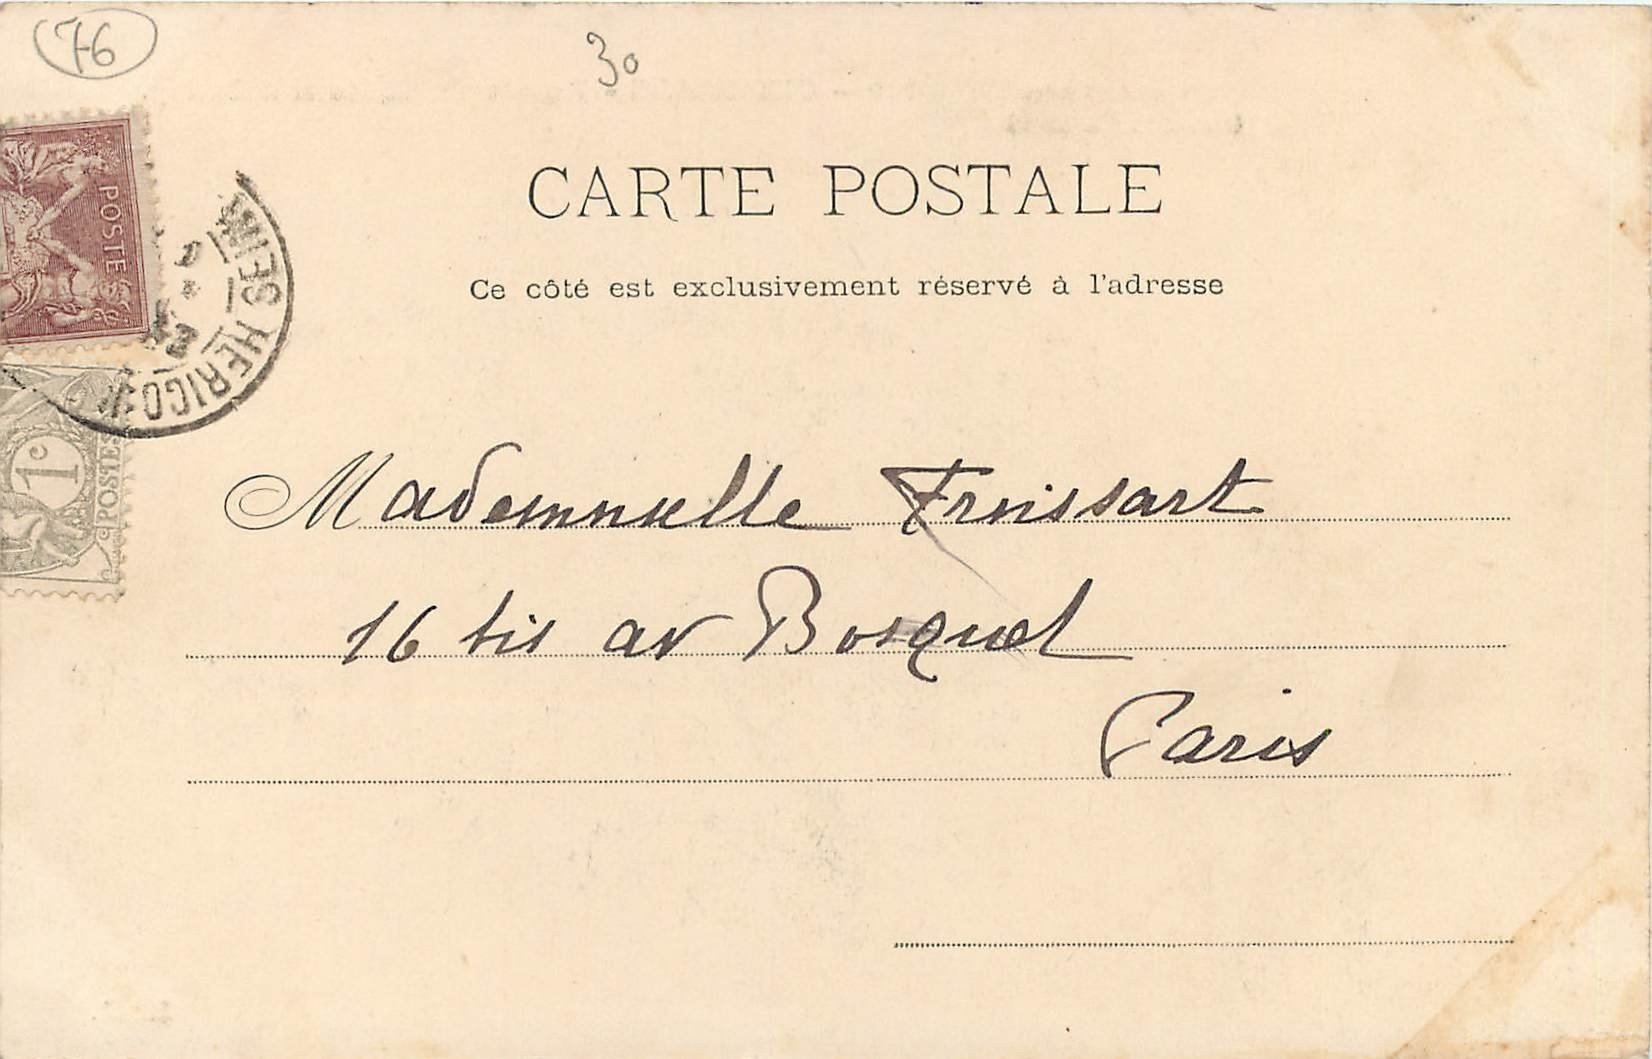 76
30
POSTE
CARTE POSTALE
Ce côté est exclusivement réservé à l'adresse
1c
POSTES
Mademoiselle Froissart
16 bis av Bosquet
Paris